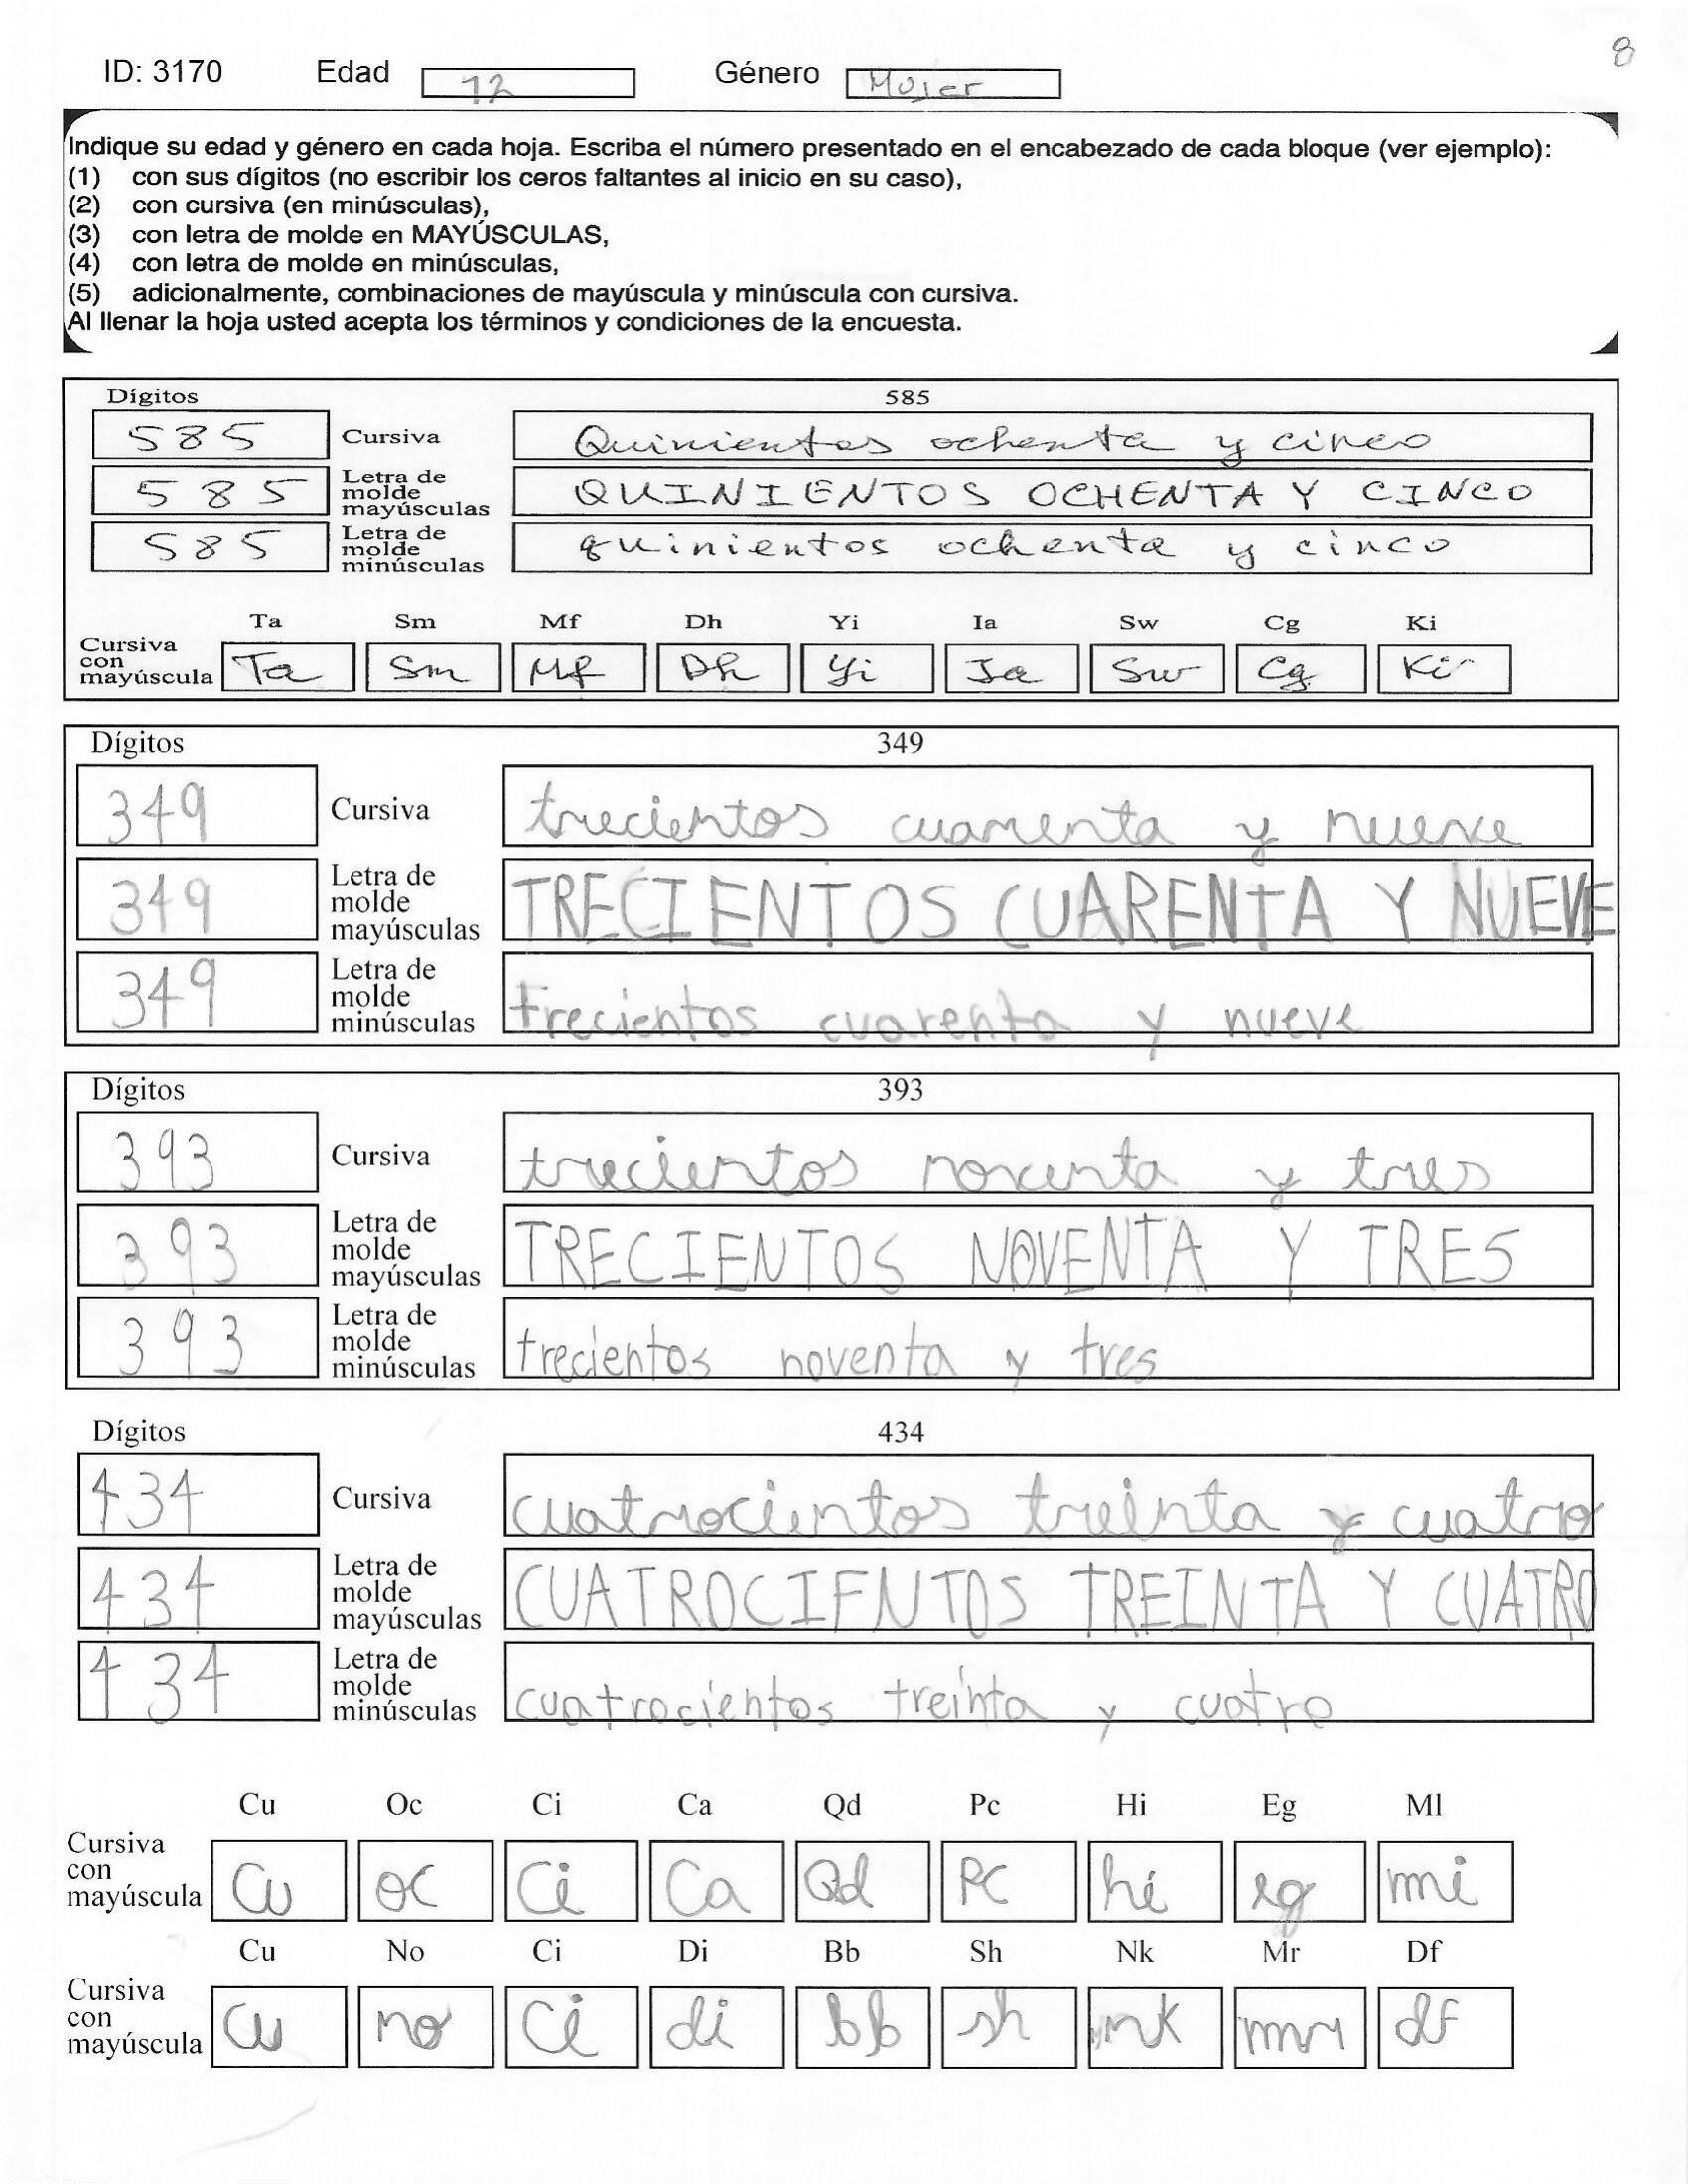 8
ID: 3170 Edad 12 Género Mujer
Indique su edad y género en cada hoja. Escriba el número presentado en el encabezado de cada bloque (ver ejemplo):
(1) con sus dígitos (no escribir los ceros faltantes al inicio en su caso),
(2) con cursiva (en minúsculas),
(3) con letra de molde en MAYÚSCULAS,
(4) con letra de molde en minúsculas,
(5) adicionalmente, combinaciones de mayúscula y minúscula con cursiva.
Al llenar la hoja usted acepta los términos y condiciones de la encuesta.
Dígitos 585
585 Cursiva Quinientos ochenta y cinco
585 Letra de molde mayúsculas QUINIENTOS OCHENTA Y CINCO
585 Letra de molde minúsculas quinientos ochenta y cinco
Ta Sm Mf Dh Yi Ia Sw Cg Ki
Cursiva con mayúscula Ta Sm Mf Dh Yi Ia Sw Cg Ki
Dígitos 349
349 Cursiva trecientos cuarenta y nueve
349 Letra de molde mayúsculas TRECIENTOS CUARENTA Y NUEVE
349 Letra de molde minúsculas trecientos cuarenta y nueve
Dígitos 393
393 Cursiva trecientos noventa y tres
393 Letra de molde mayúsculas TRECIENTOS NOVENTA Y TRES
393 Letra de molde minúsculas trecientos noventa y tres
Dígitos 434
434 Cursiva cuatrocientos treinta y cuatro
434 Letra de molde mayúsculas CUATROCIENTOS TREINTA Y CUATRO
434 Letra de molde minúsculas cuatrocientos treinta y cuatro
Cu Oc Ci Ca Qd Pc Hi Eg Ml
Cursiva con mayúscula Cu oc Ci Ca Qd Pc hi eg mi
Cu No Ci Di Bb Sh Nk Mr Df
Cursiva con mayúscula Cu no Ci di bb sh nk mr df